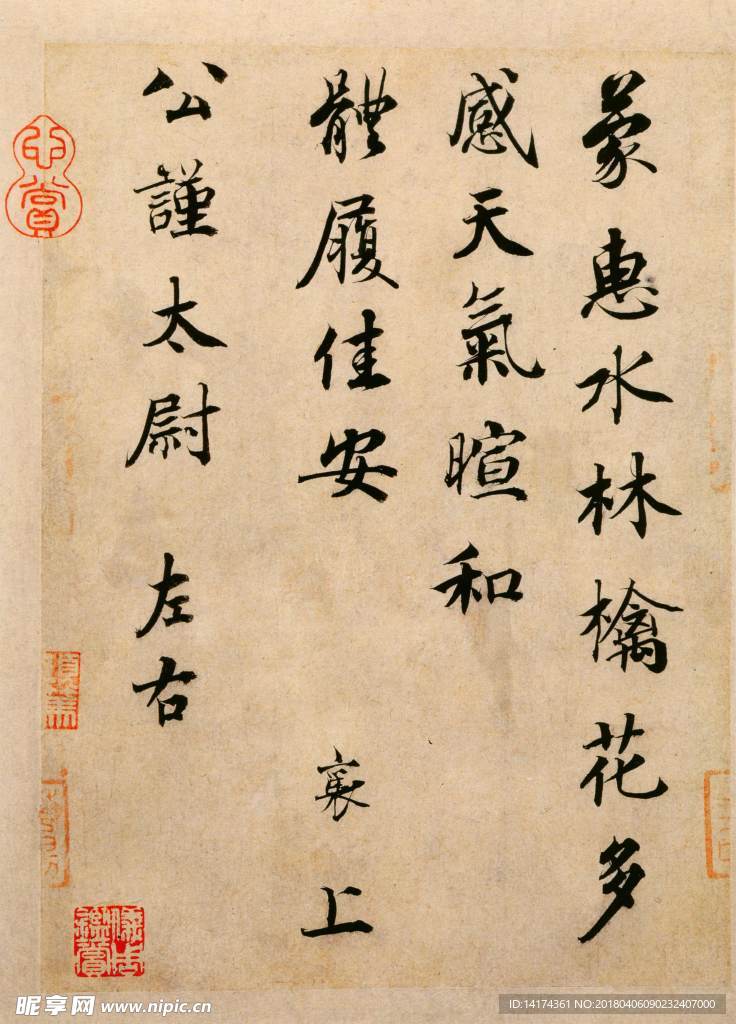 蒙惠水林檎花多
感天氣暄和
體履佳安
襄上
公謹太尉 左右
昵享网 www.nipic.cn
ID:14174361 NO:20180406090232407000